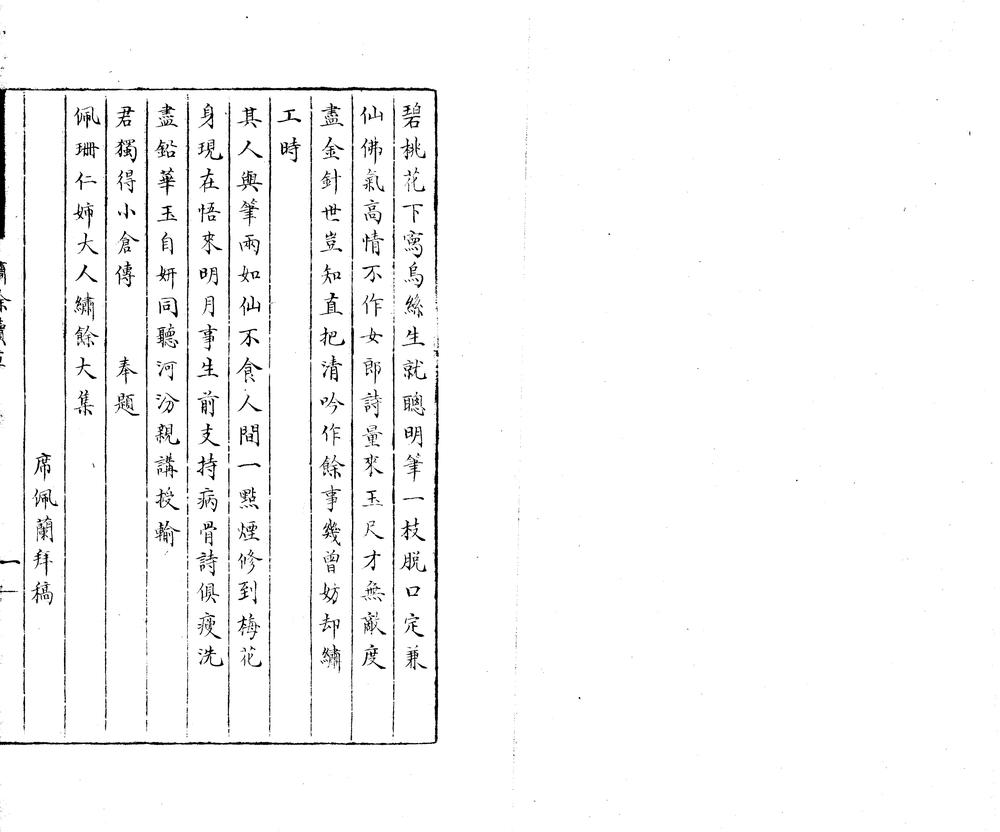 碧桃花下寫烏絲生就聰明筆一枝脫口定兼
仙佛氣高情不作女郎詩量來玉尺才無敵度
盡金針世豈知直把清吟作餘事幾曾妨却繡
工時
其人與筆兩如仙不食人間一點煙修到梅花
身現在悟來明月事生前支持病骨詩俱瘦洗
盡鉛華玉自妍同聽河汾親講授輸
君獨得小倉傳　　奉題
佩珊仁姊大人繡餘大集
席佩蘭拜稿
繡餘續草
一